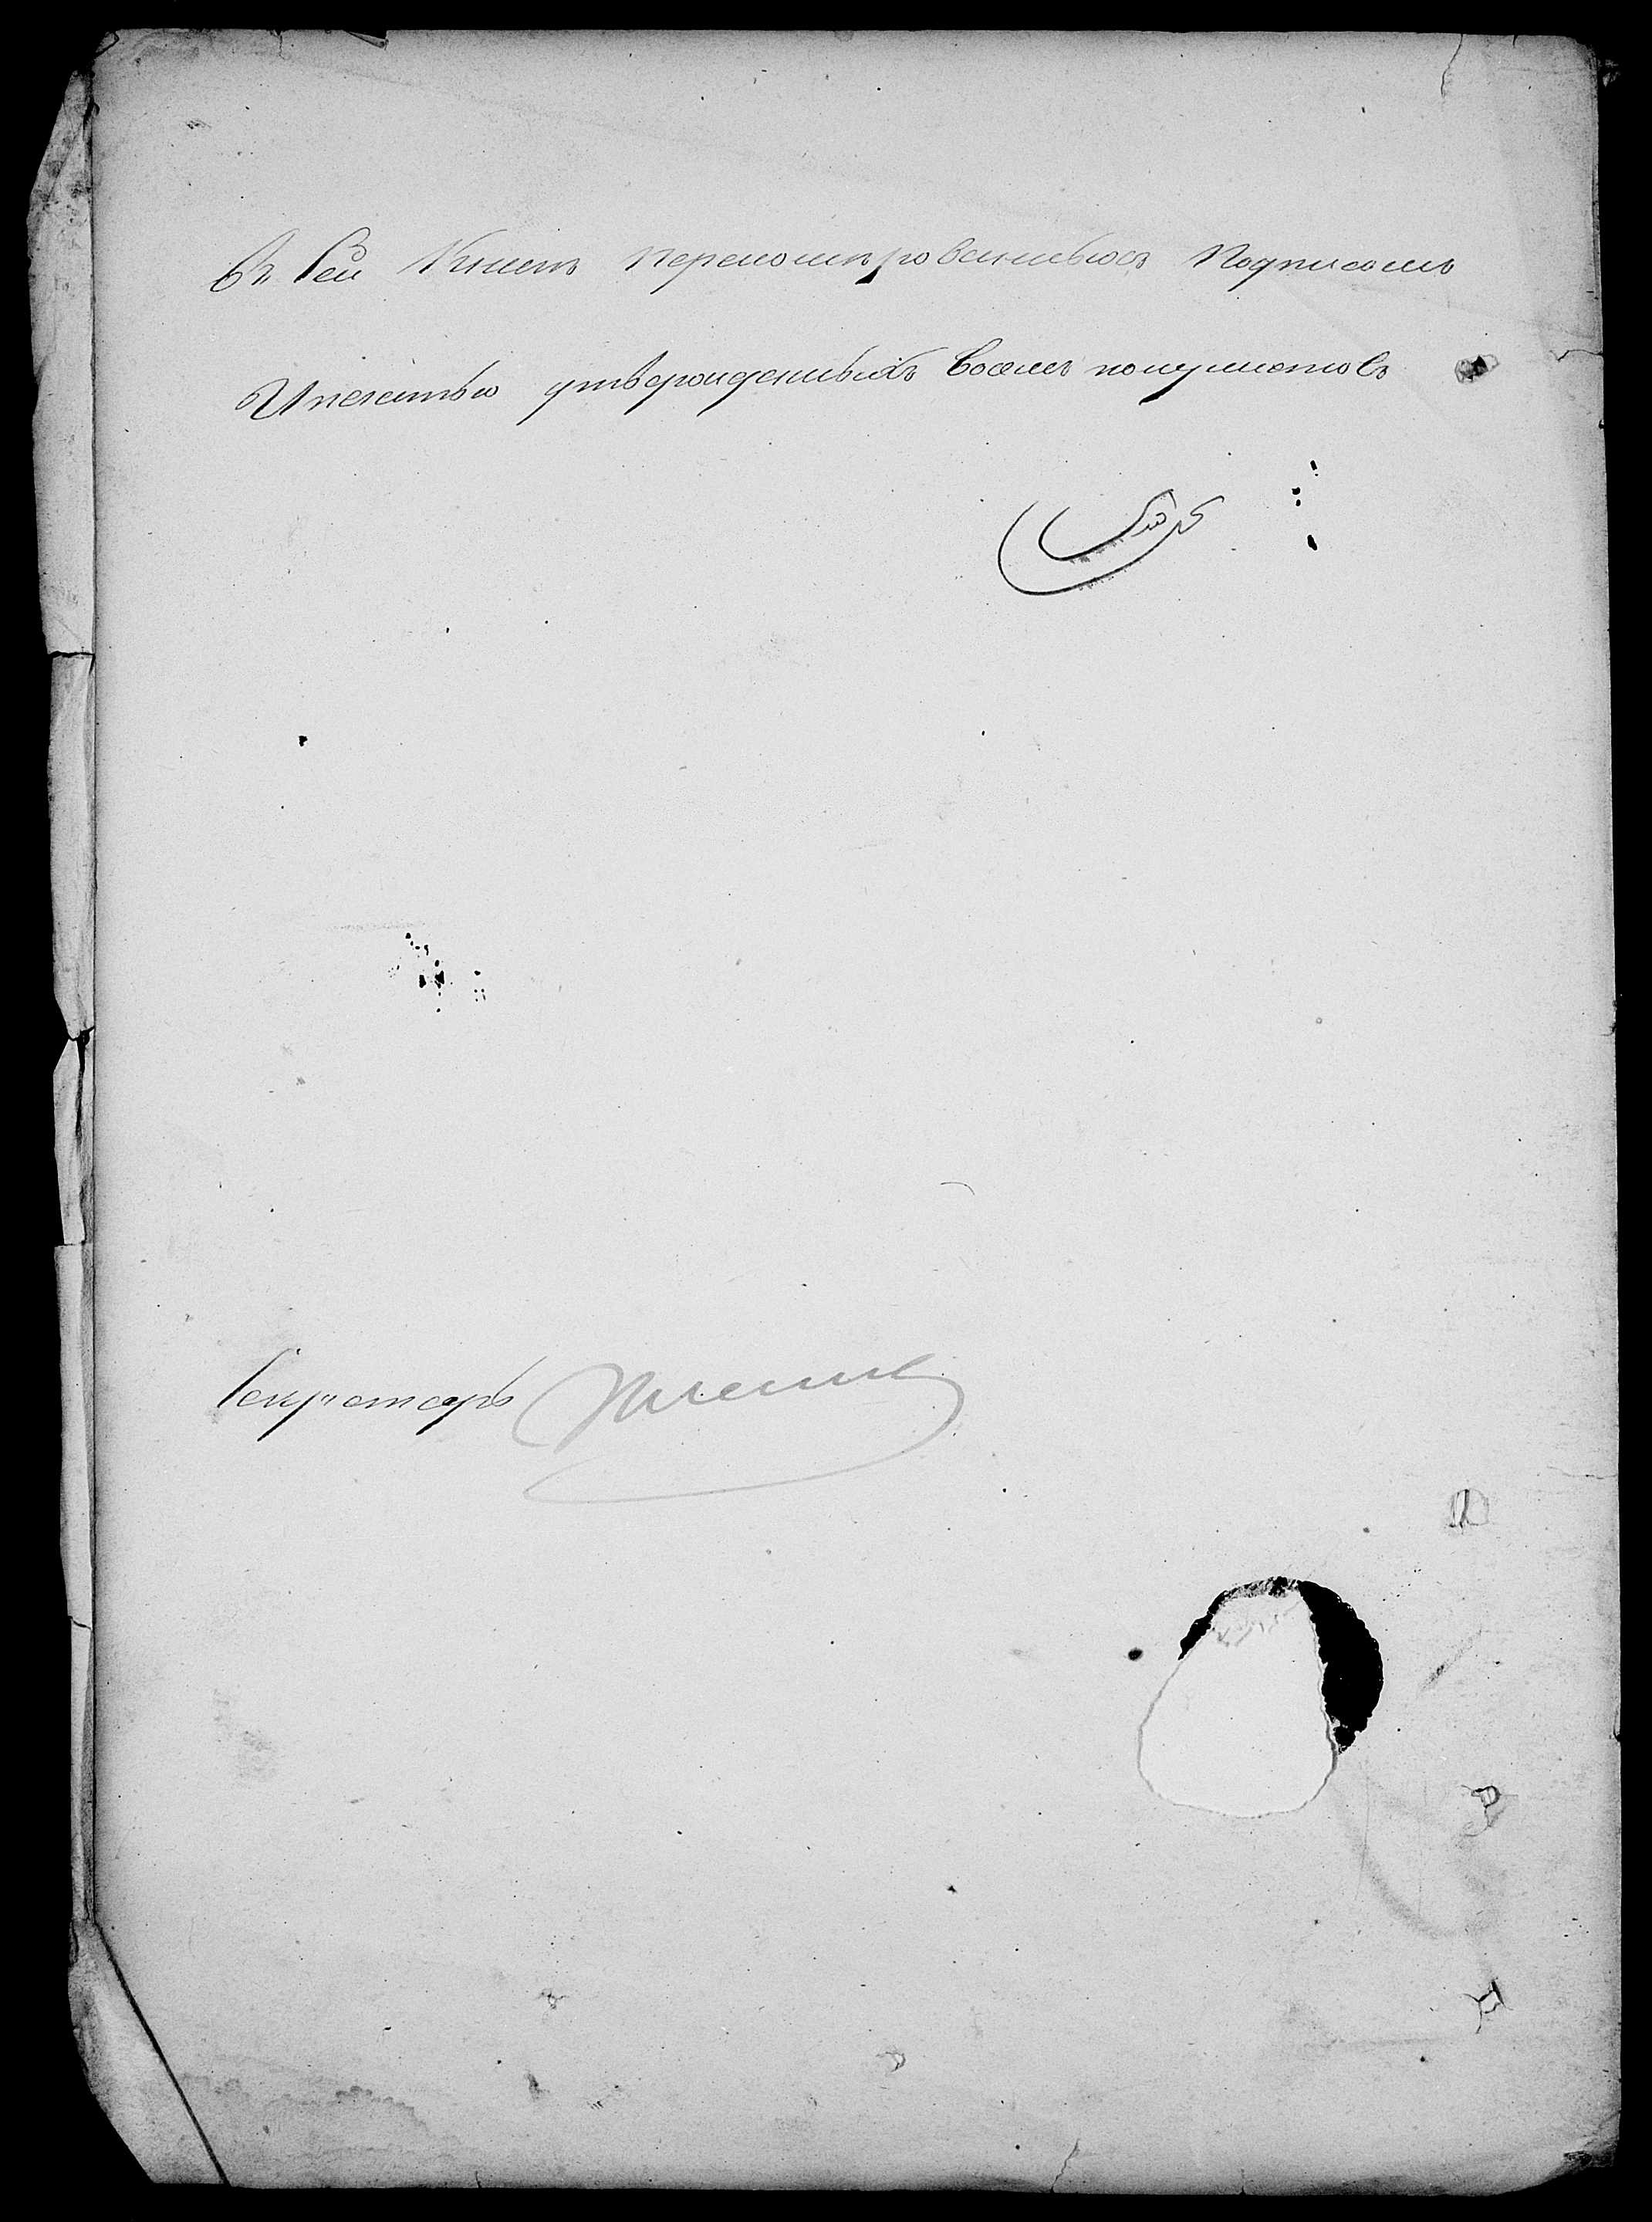 Въ Сей Книге перенумерованныхъ Подписомъ
И печатью утвержденныхъ восемь полулистовъ
Секретарь